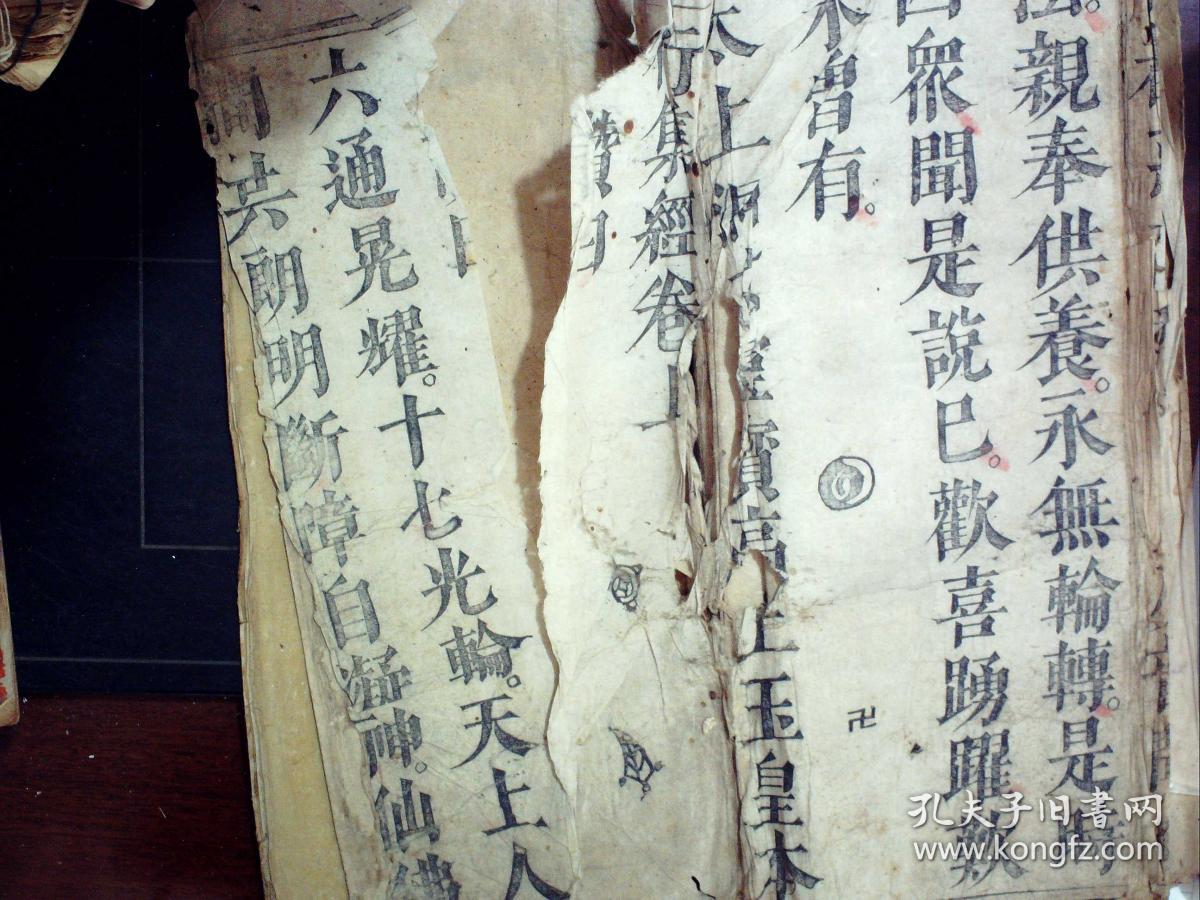 法親奉供養。永無輪轉。是時
四衆聞是說已。歡喜踴躍歎
未曾有。
太上洞 靈寶高上玉皇本
行集經卷上
讚曰
六通晃耀。十七光輪。天上人
間共朗明斷障自凝神。仙佛
卍
孔夫子旧书网
www.kongfz.com